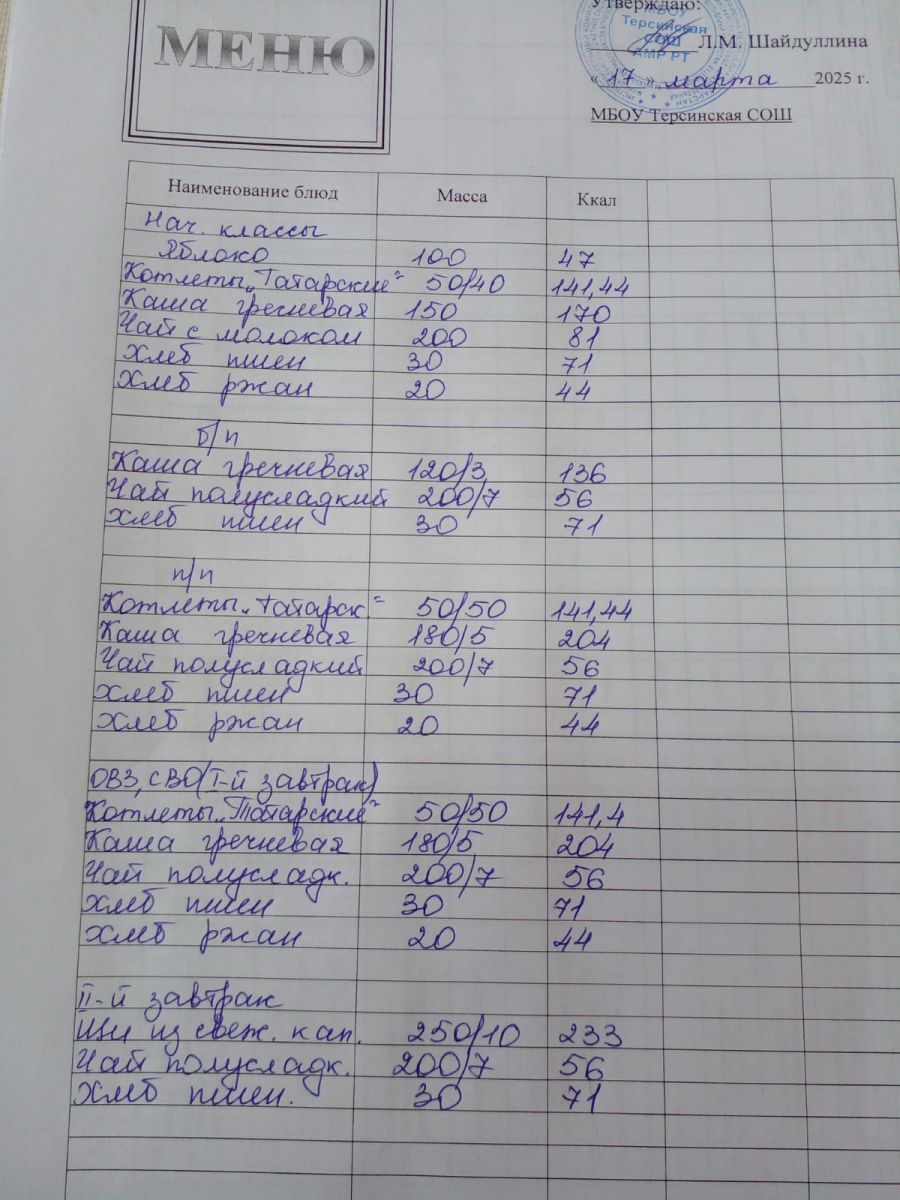 Утверждаю:
МЕНЮ
МБОУ
Терсинская
СОШ
АМР РТ
Л.М. Шайдуллина
« 17 » марта 2025 г.
МБОУ Терсинская СОШ
Наименование блюд Масса Ккал
Нач. классы
Яблоко 100 47
Котлеты „Татарские" 50/40 141,44
Каша гречневая 150 170
Чай с молоком 200 81
Хлеб пшен 30 71
Хлеб ржан 20 44
б/п
Каша гречневая 120/3 136
Чай полусладкий 200/7 56
Хлеб пшен 30 71
п/п
Котлеты „Татарск." 50/50 141,44
Каша гречневая 180/5 204
Чай полусладкий 200/7 56
Хлеб пшен 30 71
Хлеб ржан 20 44
ОВЗ, СВО (I-й завтрак)
Котлеты „Татарские" 50/50 141,4
Каша гречневая 180/5 204
Чай полусладк. 200/7 56
Хлеб пшен 30 71
Хлеб ржан 20 44
II-й завтрак
Щи из свеж. кап. 250/10 233
Чай полусладк. 200/7 56
Хлеб пшен. 30 71